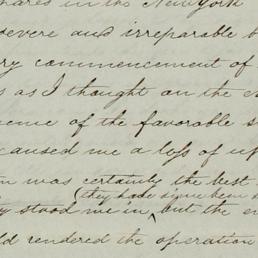 shares in the New York
severe and irreparable b
ry commencement of
s as I thought on the e
ence of the favorable s
caused me a loss of up
was certainly the best
(they have since been s
y stood me in, but the en
ld rendered the operation